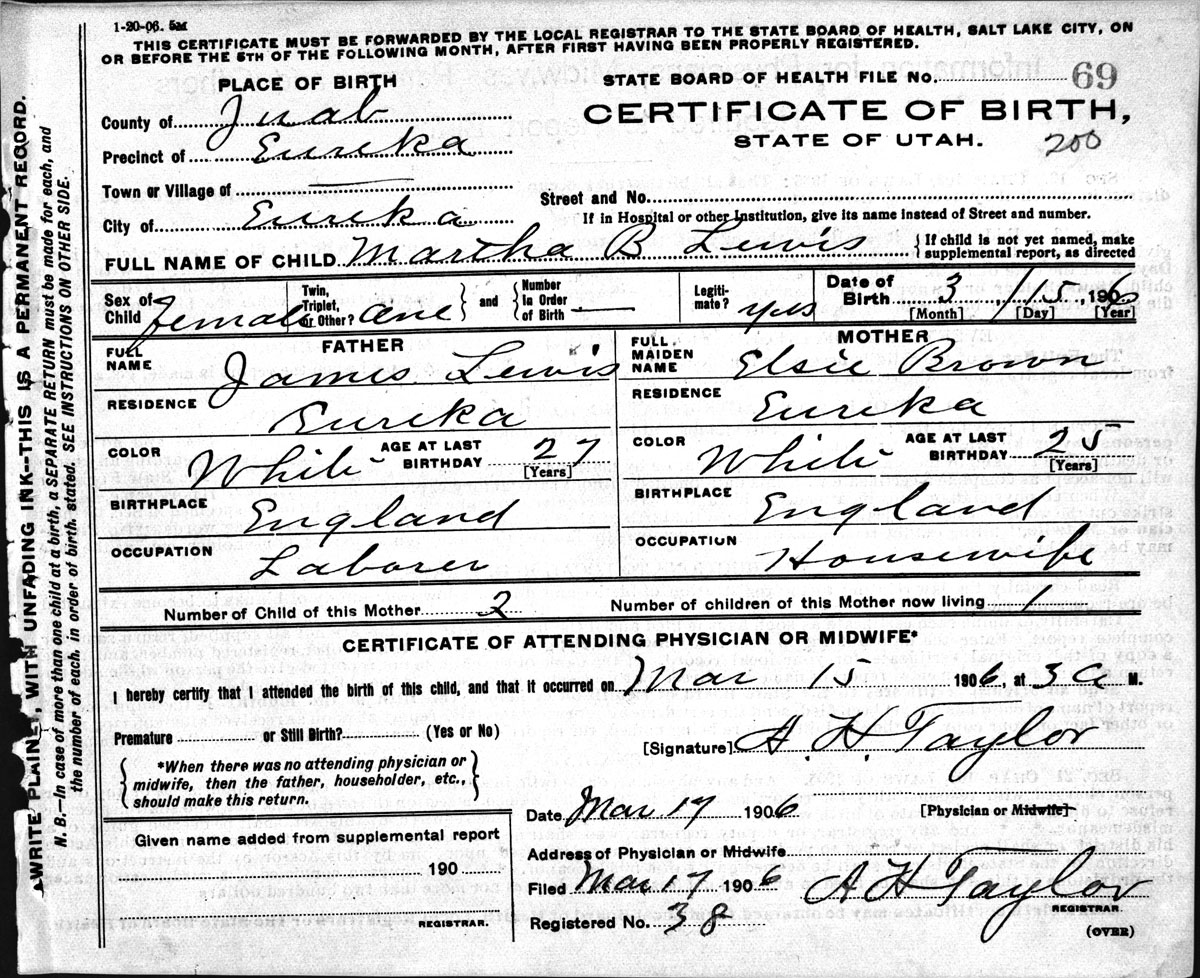 1-20-06. 5M
THIS CERTIFICATE MUST BE FORWARDED BY THE LOCAL REGISTRAR TO THE STATE BOARD OF HEALTH, SALT LAKE CITY, ON
OR BEFORE THE 5TH OF THE FOLLOWING MONTH, AFTER FIRST HAVING BEEN PROPERLY REGISTERED.
PLACE OF BIRTH
STATE BOARD OF HEALTH FILE No. 69
County of Juab
CERTIFICATE OF BIRTH,
Precinct of Eureka
STATE OF UTAH. 200
Town or Village of
Street and No.
City of Eureka
If in Hospital or other Institution, give its name instead of Street and number.
FULL NAME OF CHILD Martha B Lewis { If child is not yet named, make supplemental report, as directed
Sex of Child Female
Twin, Triplet, or Other? One } and { Number In Order of Birth
Legiti-mate? yes
Date of Birth 3, 15, 1906
[Month] [Day] [Year]
FATHER
FULL NAME James Lewis
RESIDENCE Eureka
COLOR White AGE AT LAST BIRTHDAY 27
[Years]
BIRTHPLACE England
OCCUPATION Laborer
MOTHER
FULL MAIDEN NAME Elsie Brown
RESIDENCE Eureka
COLOR White AGE AT LAST BIRTHDAY 25
[Years]
BIRTHPLACE England
OCCUPATION Housewife
Number of Child of this Mother 2 Number of children of this Mother now living 1
CERTIFICATE OF ATTENDING PHYSICIAN OR MIDWIFE*
I hereby certify that I attended the birth of this child, and that it occurred on Mar 15 1906, at 3 a M.
Premature or Still Birth? (Yes or No)
[Signature] A. H. Taylor
{ *When there was no attending physician or
midwife, then the father, householder, etc.,
should make this return. }
Date Mar 17 1906 [Physician or Midwife]
Given name added from supplemental report
190
REGISTRAR.
Address of Physician or Midwife
Filed Mar 17 1906 A H Taylor
REGISTRAR
Registered No. 38
(OVER)
WRITE PLAINLY, WITH UNFADING INK--THIS IS A PERMANENT RECORD.
N. B.--In case of more than one child at a birth, a SEPARATE RETURN must be made for each, and
the number of each, in order of birth, stated. SEE INSTRUCTIONS ON OTHER SIDE.